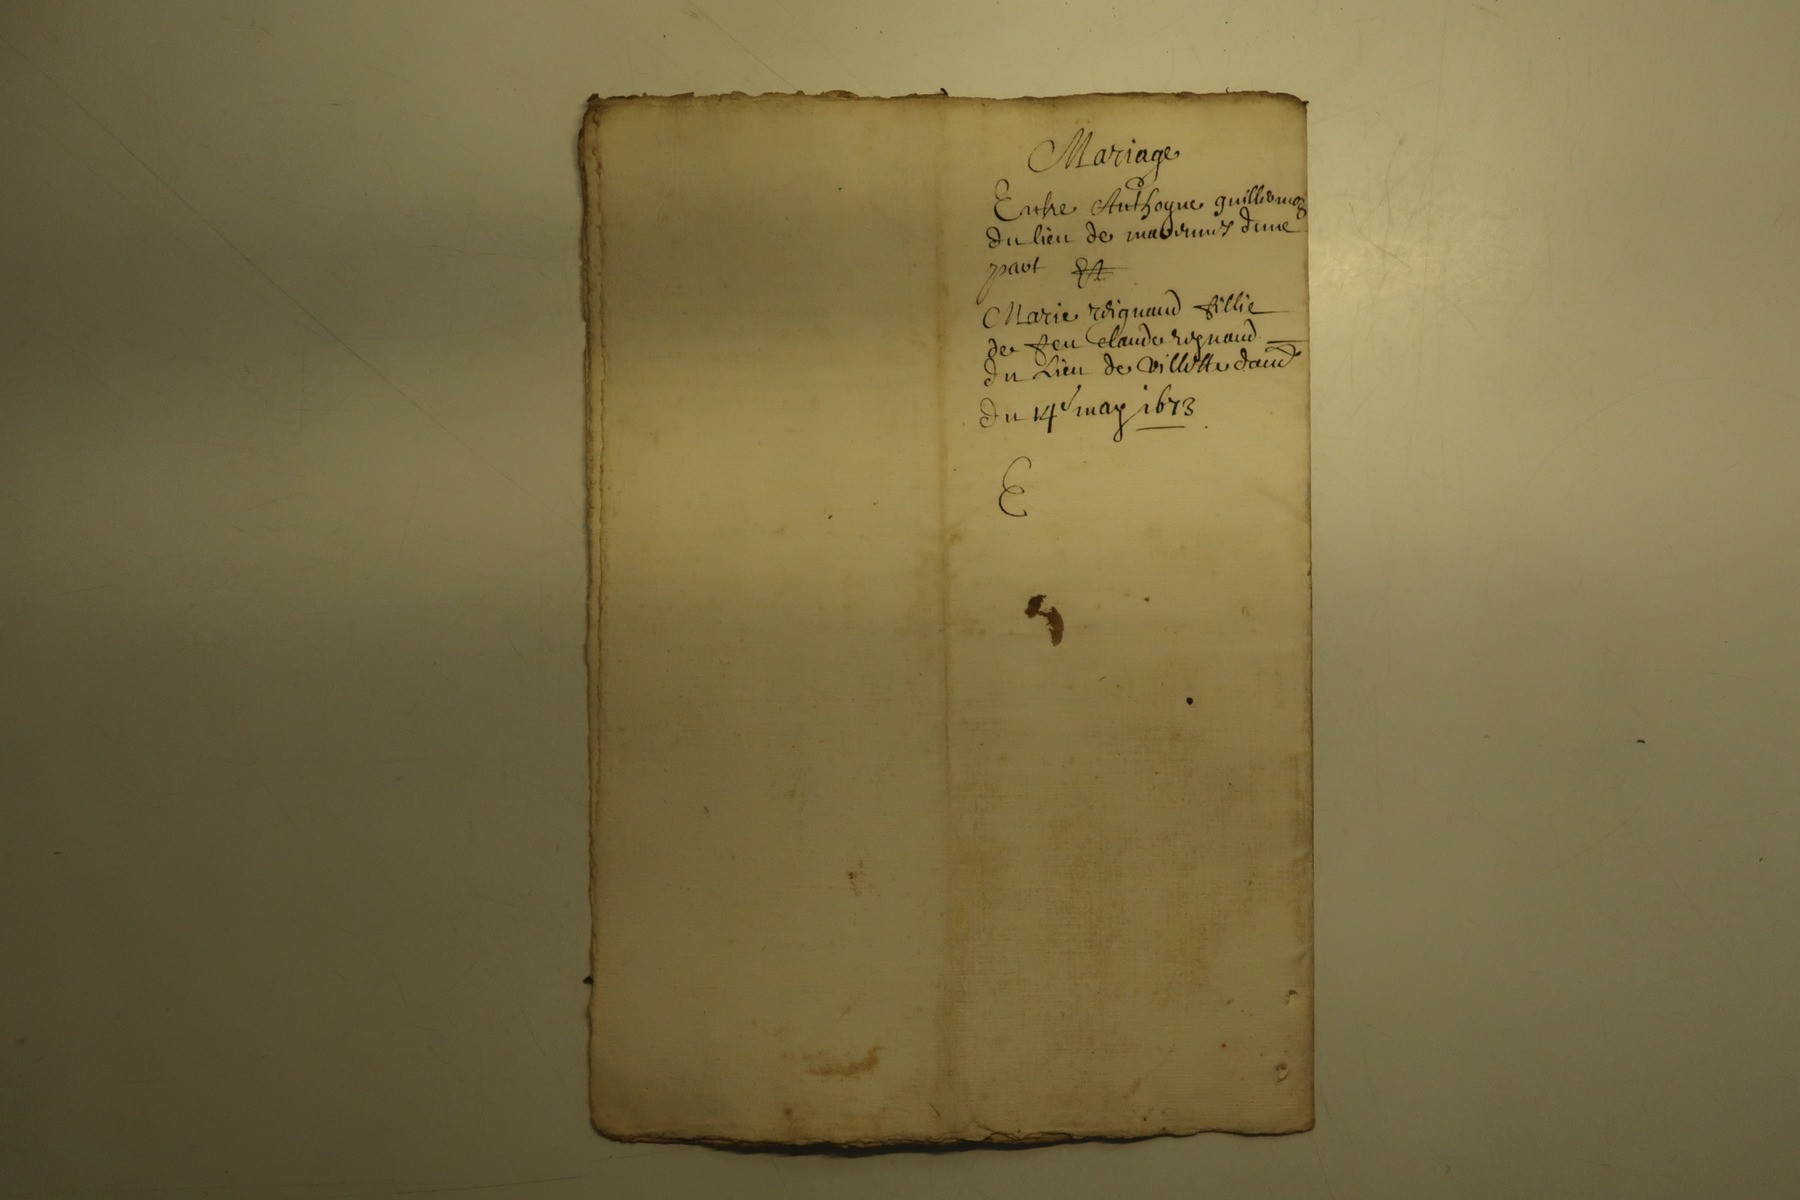 Mariage
Entre Anthoyne guillermoz
du lieu de dune
part Et
Marie reignaud fillie
de feu Claude reignaud
du Lieu de Villette
du 14e may 1673
E